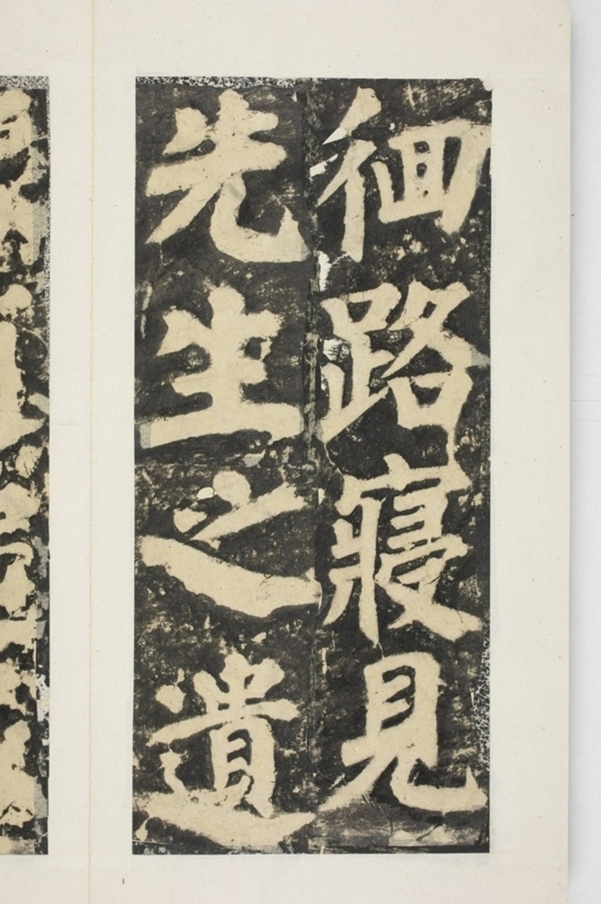 徊路寢見
先生之遺